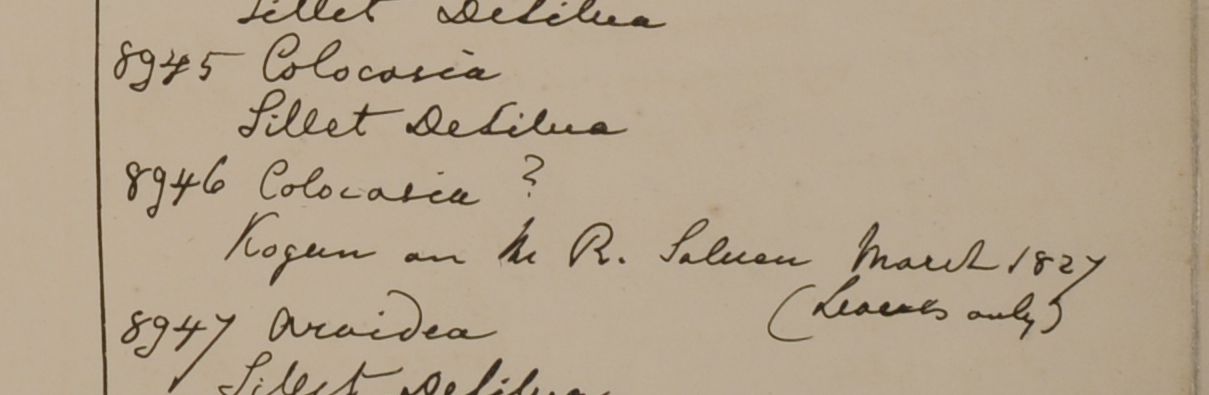 Sillet DeSilva
8945 Colocasia
Sillet DeSilva
8946 Colocasia ?
Kogun on the R. Saluen March 1827
(Leaves only)
8947 Aroidea
Sillet DeSilva